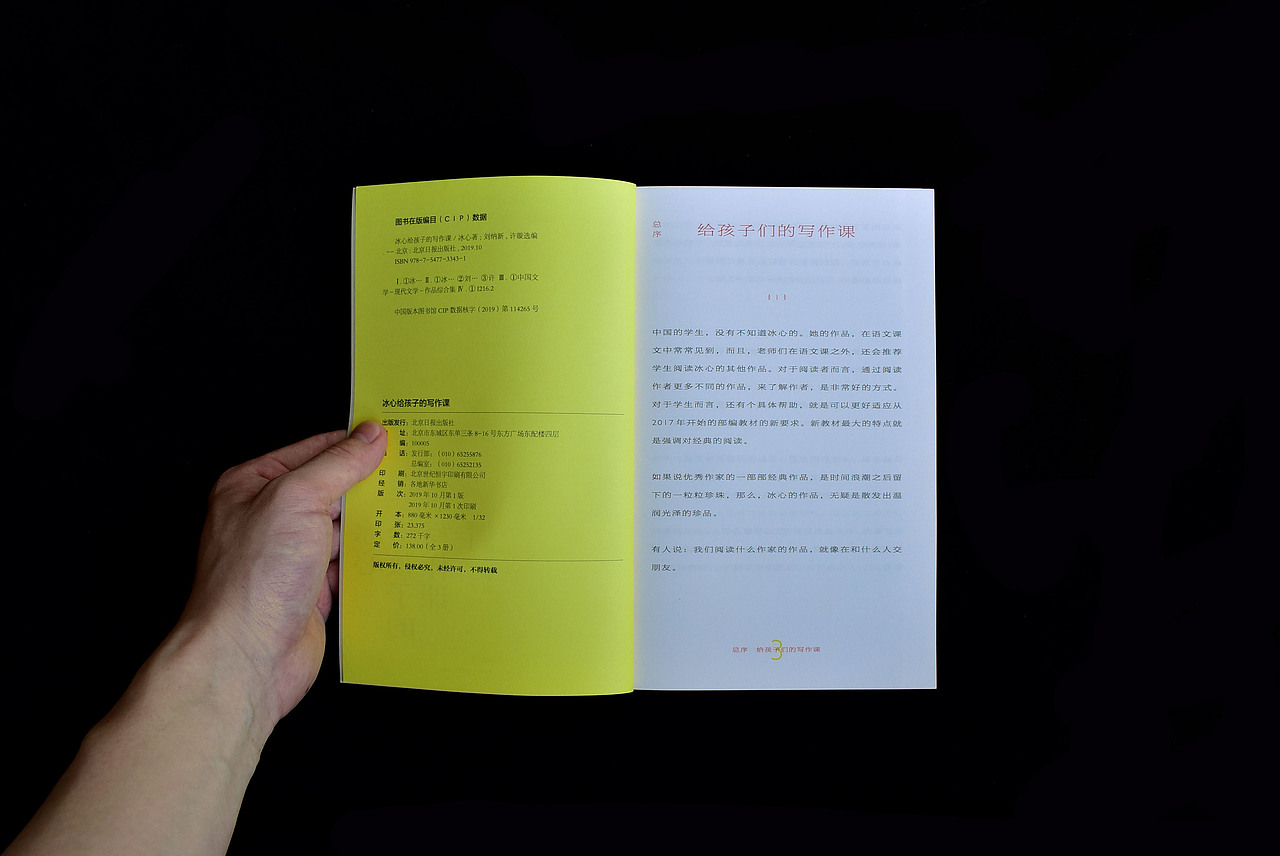 图书在版编目（CIP）数据
冰心给孩子的写作课 / 冰心著；刘纳新，许璇选编
— 北京：北京日报出版社，2019.10
ISBN 978-7-5477-3343-1
Ⅰ.①冰… Ⅱ.①冰… ②刘… ③许 Ⅲ.①中国文
学－现代文学－作品综合集 Ⅳ.①I216.2
中国版本图书馆 CIP 数据核字（2019）第 114265 号
冰心给孩子的写作课
出版发行：北京日报出版社
址：北京市东城区东单三条 8-16 号东方广场东配楼四层
编：100005
话：发行部：（010）65255876
总编室：（010）65252135
印 刷：北京世纪恒宇印刷有限公司
经 销：各地新华书店
版 次：2019 年 10 月第 1 版
2019 年 10 月第 1 次印刷
开 本：880 毫米 ×1230 毫米 1/32
印 张：23.375
字 数：272 千字
定 价：138.00（全 3 册）
版权所有，侵权必究，未经许可，不得转载
总序
给孩子们的写作课
中国的学生，没有不知道冰心的。她的作品，在语文课
文中常常见到，而且，老师们在语文课之外，还会推荐
学生阅读冰心的其他作品。对于阅读者而言，通过阅读
作者更多不同的作品，来了解作者，是非常好的方式。
对于学生而言，还有个具体帮助，就是可以更好适应从
2017 年开始的部编教材的新要求。新教材最大的特点就
是强调对经典的阅读。
如果说优秀作家的一部部经典作品，是时间浪潮之后留
下的一粒粒珍珠，那么，冰心的作品，无疑是散发出温
润光泽的珍品。
有人说：我们阅读什么作家的作品，就像在和什么人交
朋友。
总序 给孩子们的写作课
3